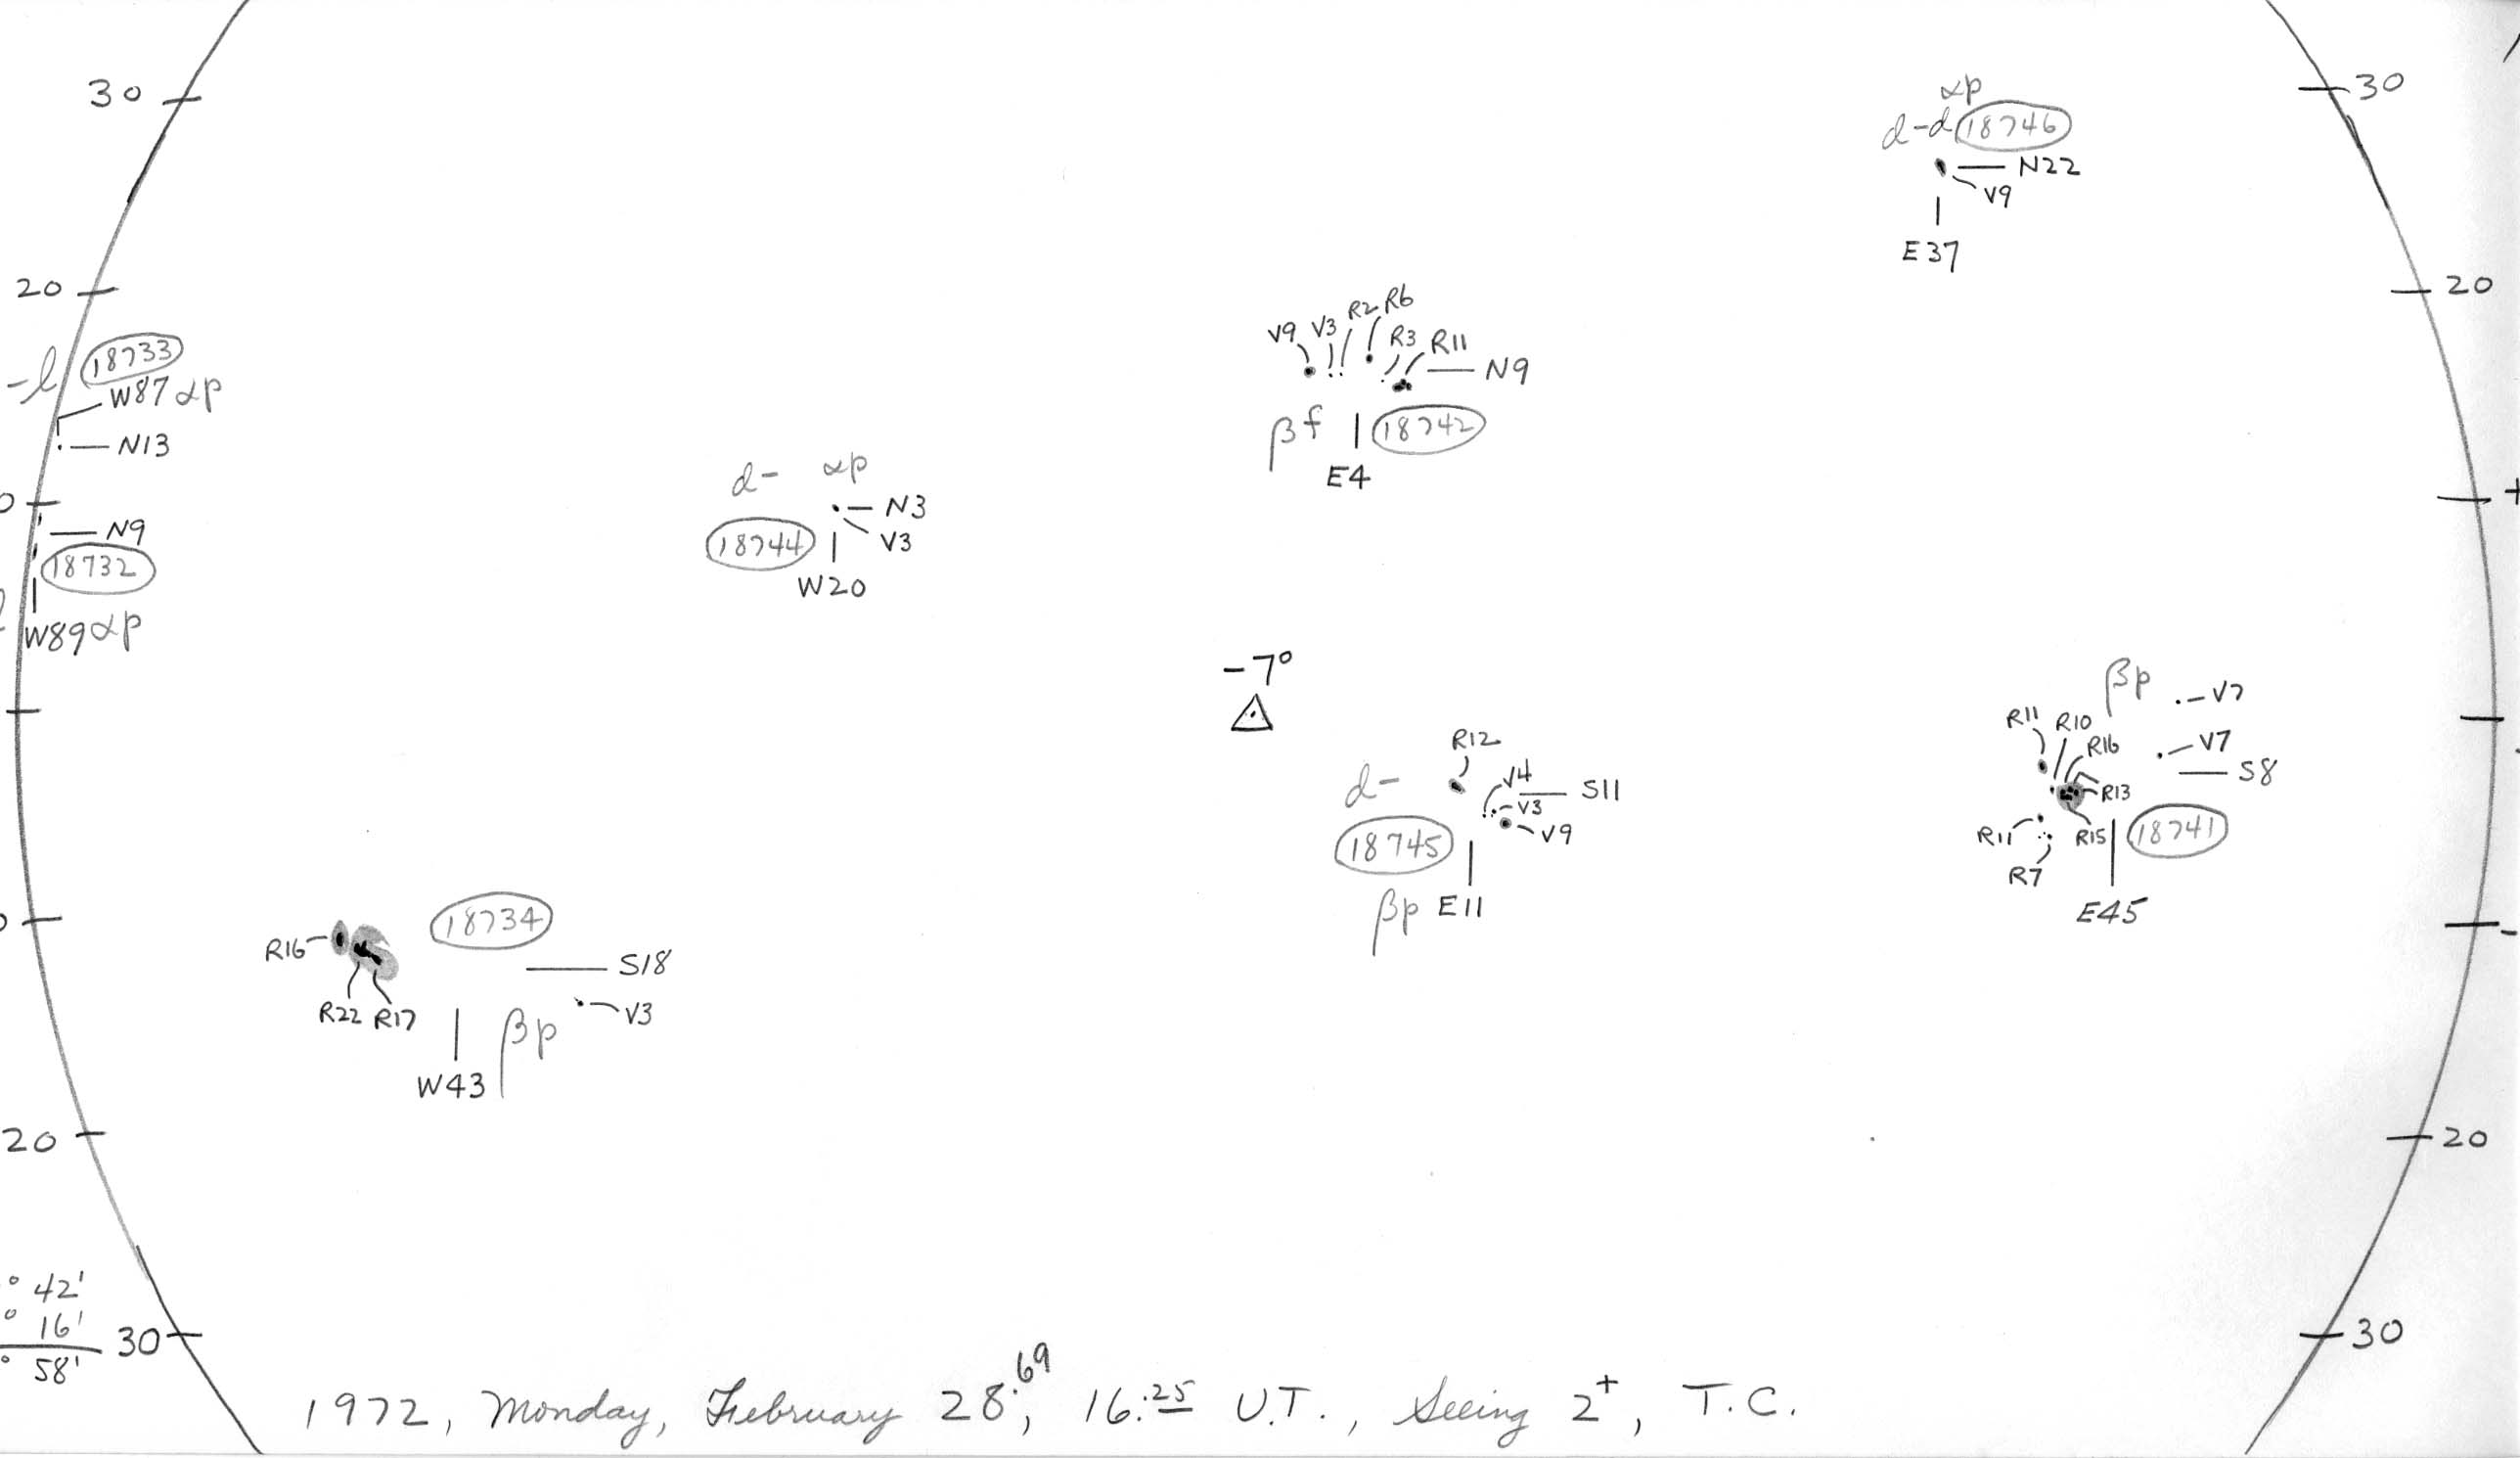 30
30
αp
d-d 18746
N22
V9
E37
20
20
V9 V3 R2 R6
R3 R11
N9
βf 18742
E4
18733
-l W87 αp
N13
N9
18732
W89 αp
d- αp
N3
18744 V3
W20
-7°
βp V7
R11 R10
R16 V7
S8
R13
R11 R15 18741
R7
E45
R12
d- V4
S11
V3
V9
18745
βp E11
18734
R16
S18
R22 R17
V3
βp
W43
20
20
° 42'
° 16'
° 58'
30
30
1972, Monday, February 28.69, 16:25 U.T., Seeing 2+, T.C.